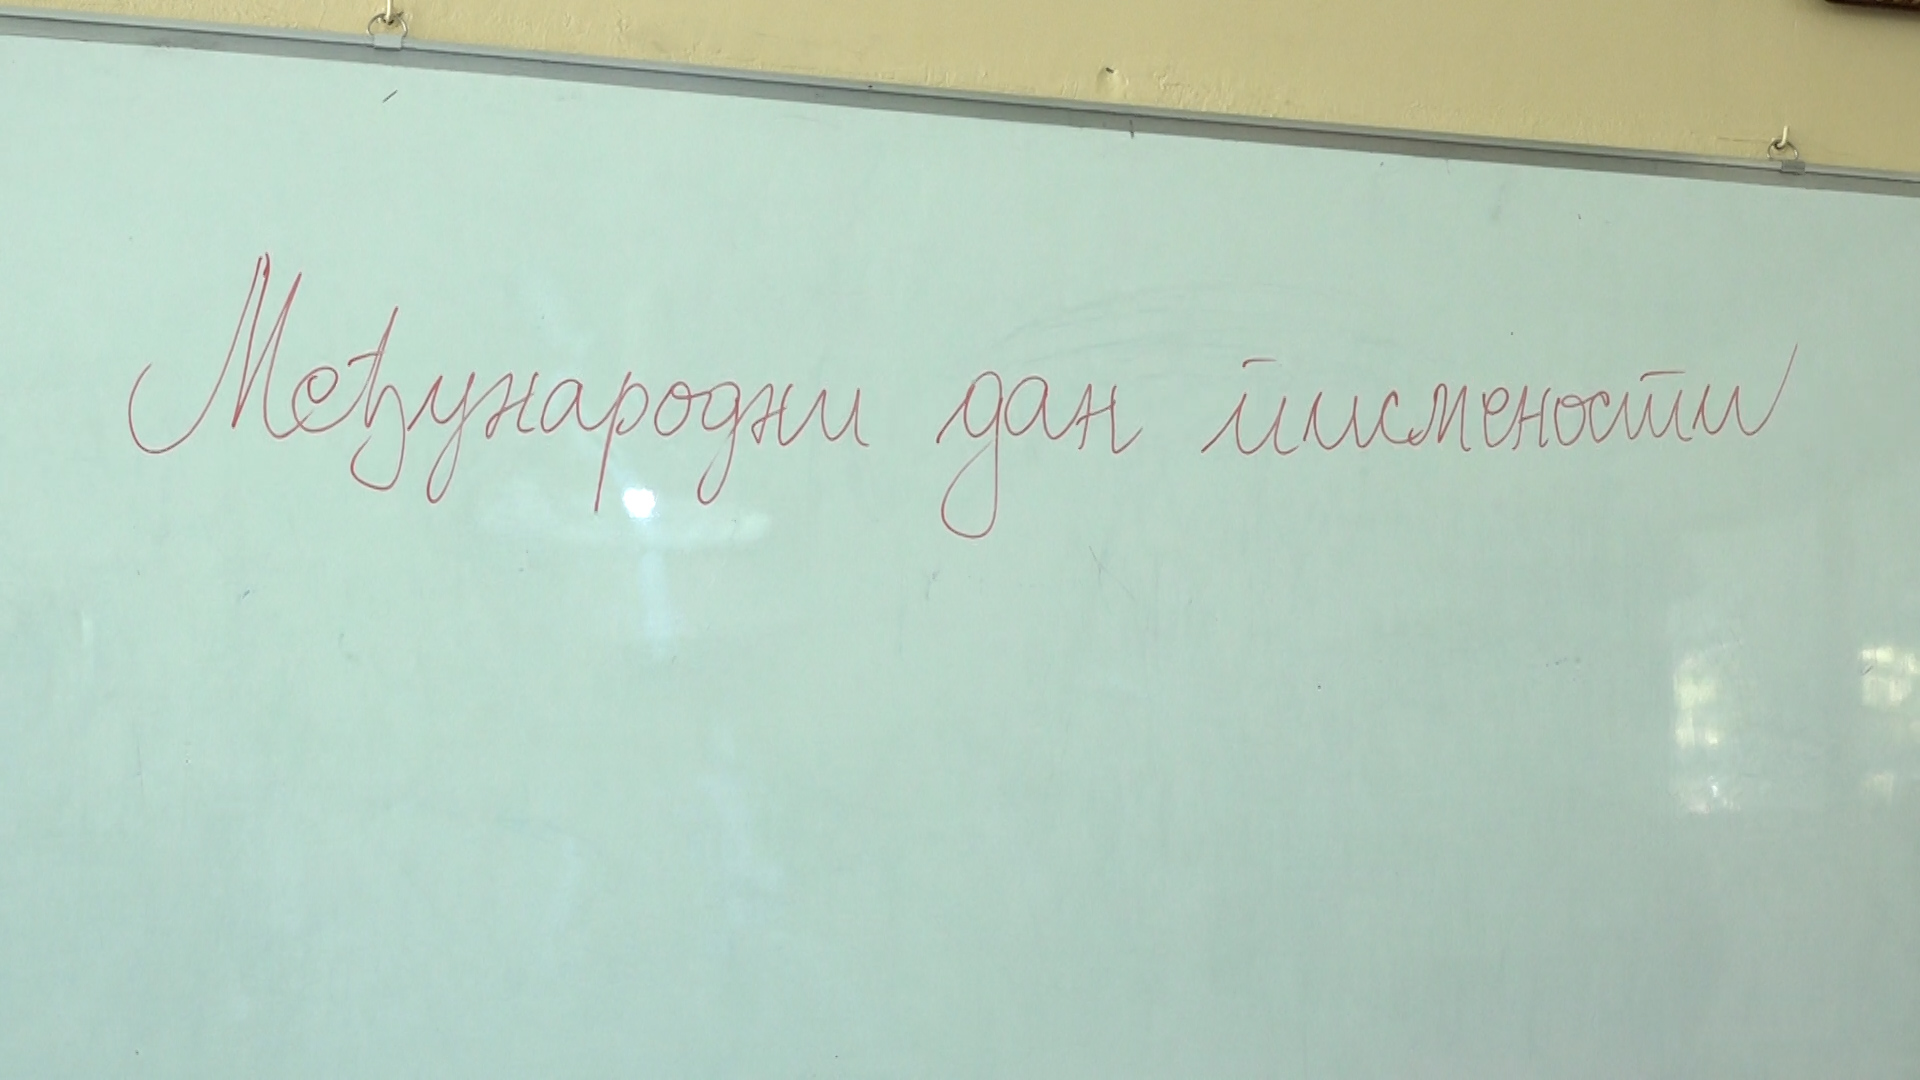 Међународни дан писмености